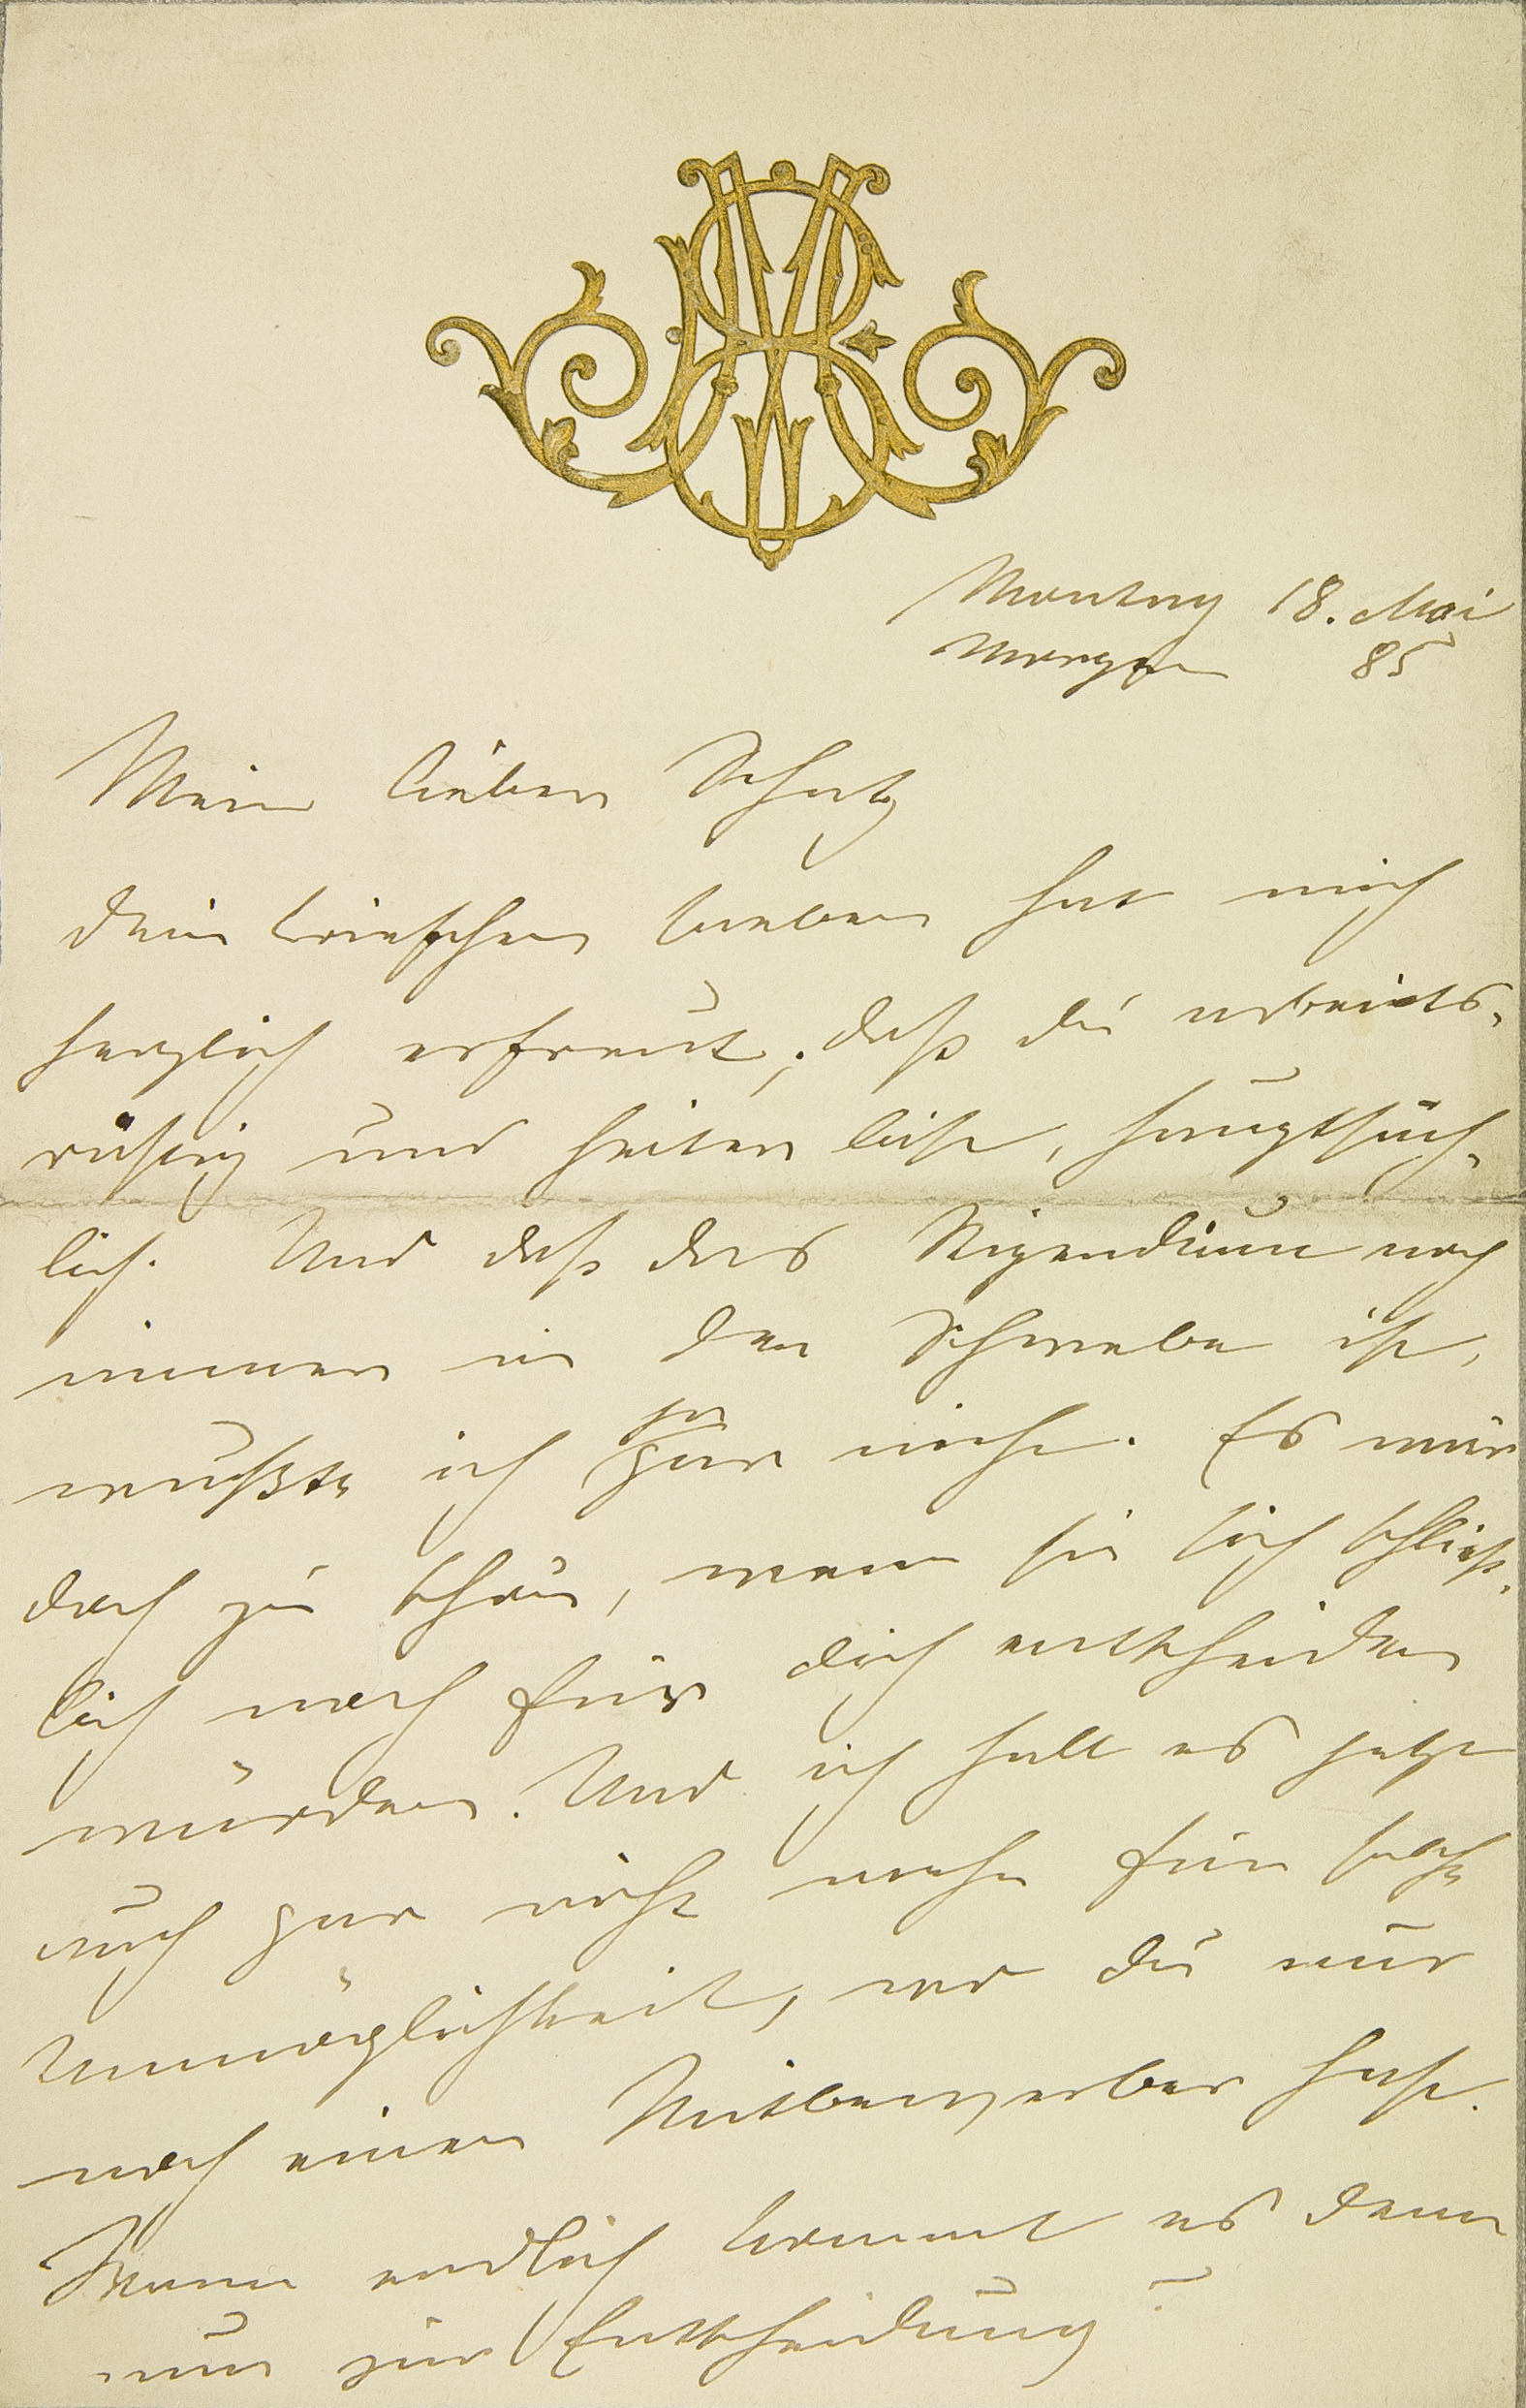 Montag 18. Mai
Morgen 85
Mein lieber Schatz
Dein briefchen hat mich
herzlich erfreut, daß du arbeits-
rüstig und heiter bist, hauptsäch-
lich. Und daß das Stipendium noch
immer in der Schwebe ist,
wußte ich ja
gar nicht. Es wär
doch zu schön, wenn sie sich schließ-
lich noch für dich entscheiden
würden. Und ich halt es jetzt
auch gar nicht mehr für solche
Unmöglichkeit, wo du nur
noch einen Mitbewerber hast.
Wann endlich kommt es denn
nun zur Entscheidung?